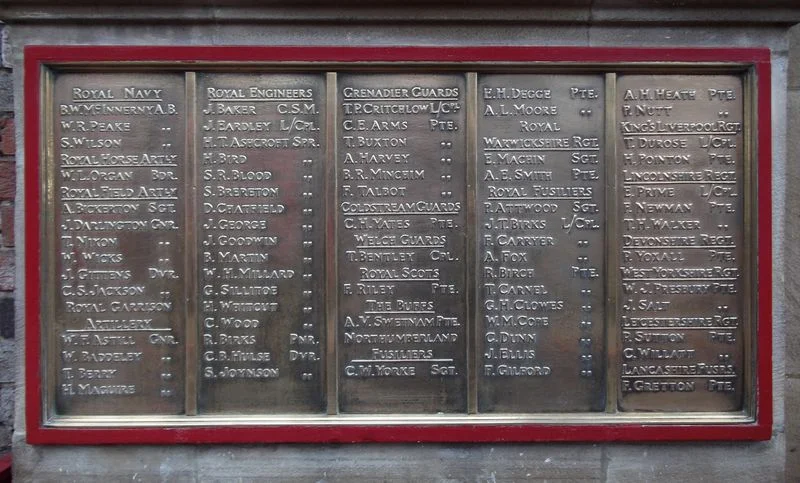 ROYAL NAVY
B.W. McINNERNY A.B.
W.R. PEAKE „
S. WILSON „
ROYAL HORSE ARTLY
W.L. ORGAN BDR.
ROYAL FIELD ARTLY
A. BICKERTON SGT.
J. DARLINGTON GNR.
T. NIXON „
W. WICKS „
J. GITTENS DVR.
C.S. JACKSON „
ROYAL GARRISON
ARTILLERY
W.F. ASTILL GNR.
W. BADDELEY „
T. BERRY „
H. MAGUIRE „
ROYAL ENGINEERS
J. BAKER C.S.M.
J. EARDLEY L/CPL.
H.T. ASHCROFT SPR.
H. BIRD „
S.R. BLOOD „
S. BRERETON „
D. CHATFIELD „
J. GEORGE „
J. GOODWIN „
B. MARTIN „
W.H. MILLARD „
G. SILLITOE „
H. WHITGUT „
C. WOOD „
R. BIRKS PNR.
C.B. HULSE DVR.
S. JOYNSON „
GRENADIER GUARDS
T.P. CRITCHLOW L/CPL
C.E. ARMS PTE.
T. BUXTON „
A. HARVEY „
B.R. MINCHIM „
F. TALBOT „
COLDSTREAM GUARDS
C.H. YATES PTE.
WELCH GUARDS
T. BENTLEY CPL.
ROYAL SCOTS
F. RILEY PTE.
THE BUFFS
A.M. SWETNAM PTE.
NORTHUMBERLAND
FUSILIERS
C.W. YORKE SGT.
E.H. DEGGE PTE.
A.L. MOORE „
ROYAL
WARWICKSHIRE RGT.
E. MACHIN SGT.
A.E. SMITH PTE.
ROYAL FUSILIERS
P. ATTWOOD SGT.
J.T. BIRKS L/CPL.
F. CARRYER „
A. FOX „
R. BIRCH PTE.
T. CARNEL „
G.H. CLOWES „
W.M. COPE „
C. DUNN „
J. ELLIS „
F. GILFORD „
A.H. HEATH PTE.
P. NUTT „
KING'S LIVERPOOL RGT.
T. DUROSE L/CPL.
H. POINTON PTE.
LINCOLNSHIRE REGT.
E. PRIME L/CPL
F. NEWMAN PTE.
T.H. WALKER „
DEVONSHIRE REGT.
P. YOXALL PTE.
WEST YORKSHIRE RGT.
W.C. PRESBURY PTE.
J. SALT „
LEICESTERSHIRE RGT.
P. SUTTON PTE.
C. WILLATT „
LANCASHIRE FUSRS.
F. GRETTON PTE.